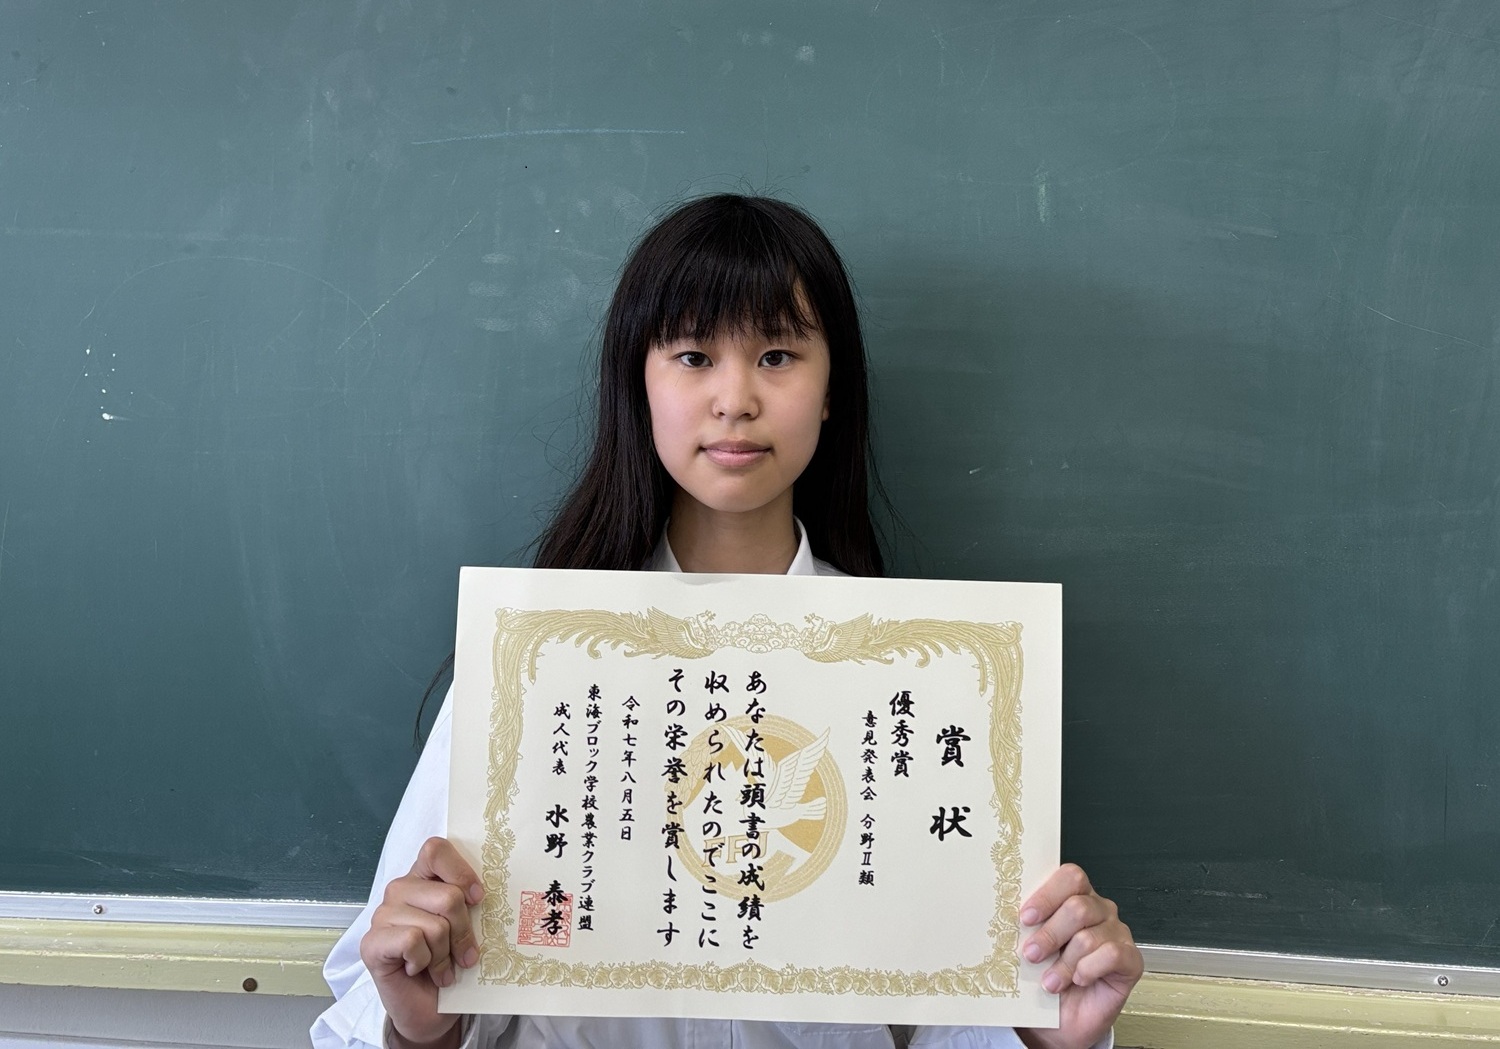 賞状
優秀賞
意見発表会 分野Ⅱ類
あなたは頭書の成績を
収められたのでここに
その栄誉を賞します
令和七年八月五日
東海ブロック学校農業クラブ連盟
成人代表 水野 泰孝
FFJ